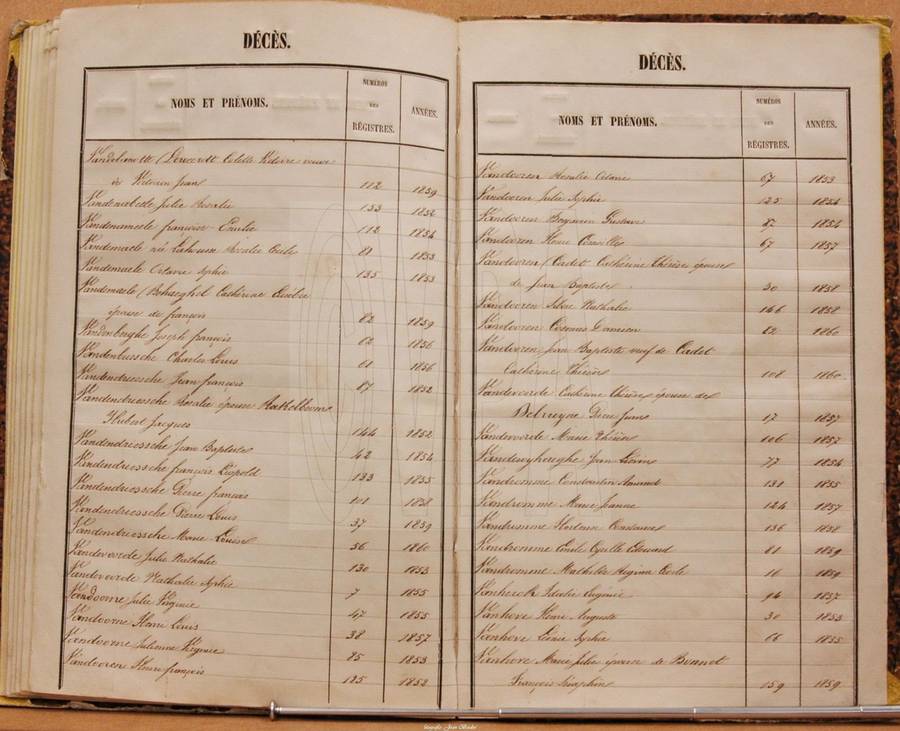 DÉCÈS.
NOMS ET PRÉNOMS.
NUMÉROS
DES
RÉGISTRES.
ANNÉES.
veuve
à Victorien Jean 112 1859
Vandenabelle Julie Rosalie 133 1852
Vandenameele françoise Emilie 112 1854
Vandemaele née Lahousse Rosalie Cécile 81 1853
Vandemaele Octavie Sophie 135 1853
Vandemaele (Behaeghel Cathérine Eusébie
épouse de françois 82 1859
Vandenberghe Joseph françois 62 1856
Vandenbussche Charles Louis 61 1856
Vandendriessche Jean françois 87 1852
Vandendriessche Rosalie épouse
Hubert Jacques 144 1852
Vandendriessche Jean Baptiste 42 1854
Vandendriessche françois Léopold 133 1855
Vandendriessche Pierre françois 101 1858
Vandendriessche Pierre Louis 37 1859
Vandendriessche Marie Louise 56 1860
Vandevoorde Julie Nathalie 130 1853
Vandevoorde Nathalie Sophie 7 1855
Vandoorne Julie Virginie 47 1855
Vandoorne Henri Louis 38 1857
Vandoorne Julienne Virginie 85 1853
Vandooren Henri françois 125 1852
DÉCÈS.
NOMS ET PRÉNOMS.
NUMÉROS
DES
RÉGISTRES.
ANNÉES.
Vandooren Rosalie 67 1853
Vandooren Julie Sophie 125 1854
Vandooren Benjamin Gustave 87 1854
Vandooren Henri Corneille 67 1857
Vandooren (Cadet Cathérine Thérèse épouse
de Jean Baptiste 30 1858
Vandooren Nathalie 146 1858
Vandooren Cosmus Damien 82 1860
Vandooren Jean Baptiste veuf de Cadet
Cathérine Thérèse 108 1860
Vandevoorde Cathérine Thérèse épouse de
Debruyne Pierre Jean 17 1857
Vandevoorde Marie Thérèse 106 1857
Jean 77 1854
Vandromme Constantin Amand 131 1855
Vandromme Marie Jeanne 124 1857
Vandromme Hortense Constance 136 1858
Vandromme Emile Cyrille Edouard 81 1859
Vandromme Mathilde Régina Cécile 11 1859
Vanheeck Eugénie 94 1857
Vanhove Henri Auguste 30 1853
Vanhove Léonie Sophie 68 1855
Vanhove Marie Julie épouse de Bonnot
François Séraphin 159 1859